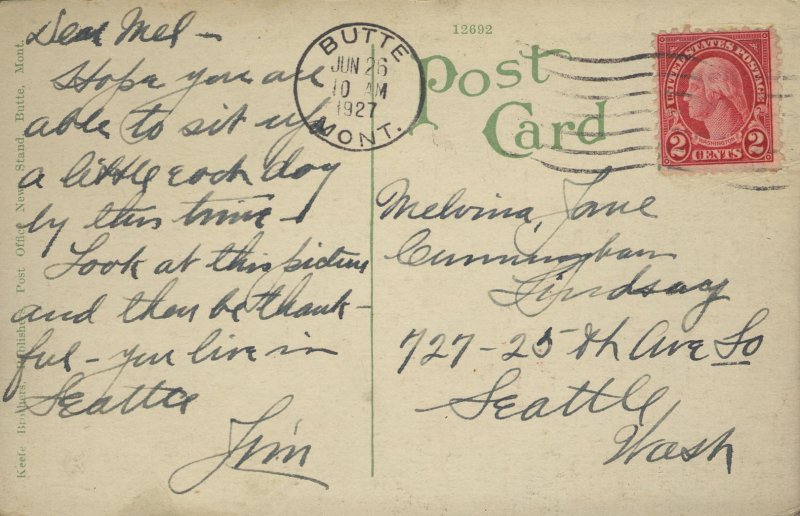 Dear Mel -
Hope you are
able to sit up
a little each day
by this time -
Look at this picture
and then be thank-
ful - you live in
Seattle
Jim
Keefe Brothers, Publishers, Post Office News Stand, Butte, Mont.
12692
Post
Card
BUTTE
JUN 26
10 AM
1927
MONT.
UNITED STATES POSTAGE
WASHINGTON
2 CENTS 2
Melvina Jane
Cunningham
Lindsay
727-25th Ave So
Seattle
Wash